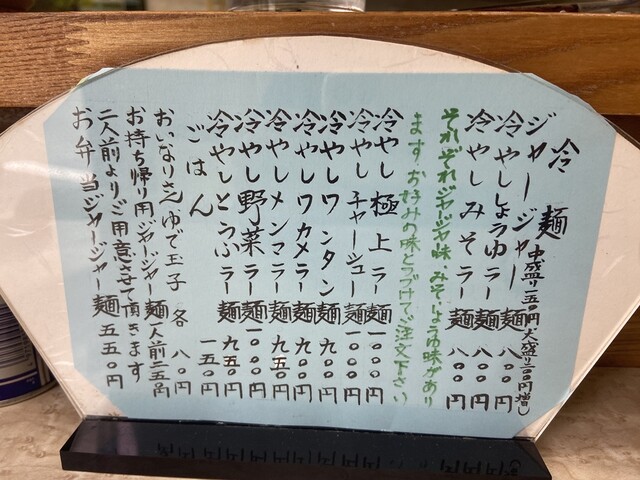 冷麺 中盛り一五〇円 大盛二〇〇円増し
ジャージャー麺 八〇〇円
冷やししょうゆラー麺 八〇〇円
冷やしみそラー麺 八〇〇円
それぞれジャージャ味 みそしょうゆ味があり
ます お好みの味とつづけてご注文下さい
冷やし極上ラー麺 一〇〇〇円
冷やしチャーシュー麺 一〇〇〇円
冷やしワンタン麺 九〇〇円
冷やしワカメラー麺 九〇〇円
冷やしメンマラー麺 九五〇円
冷やし野菜ラー麺 一〇〇〇円
冷やしとうふラー麺 九五〇円
ごはん 一五〇円
おいなりさん ゆで玉子 各 八〇円
お持ち帰り用ジャージャー麺一人前二五〇円
二人前よりご用意させて頂きます
お弁当ジャージャー麺 五五〇円